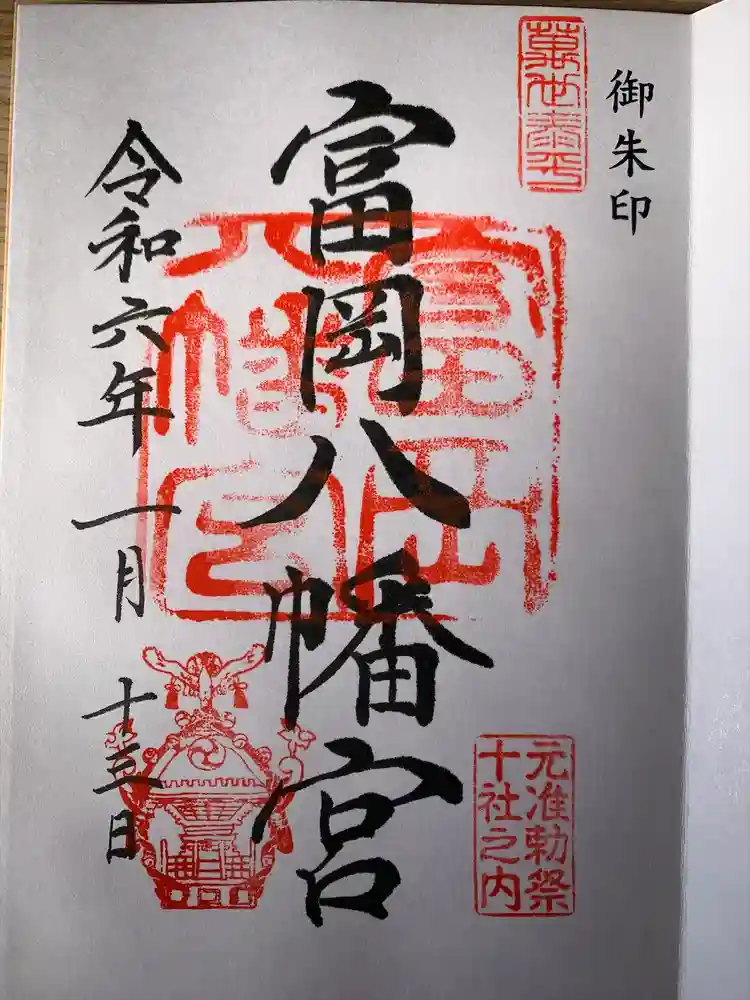 御朱印
萬世泰平
富岡八幡宮
富岡八幡宮
元准勅祭
十社之内
令和六年一月十三日